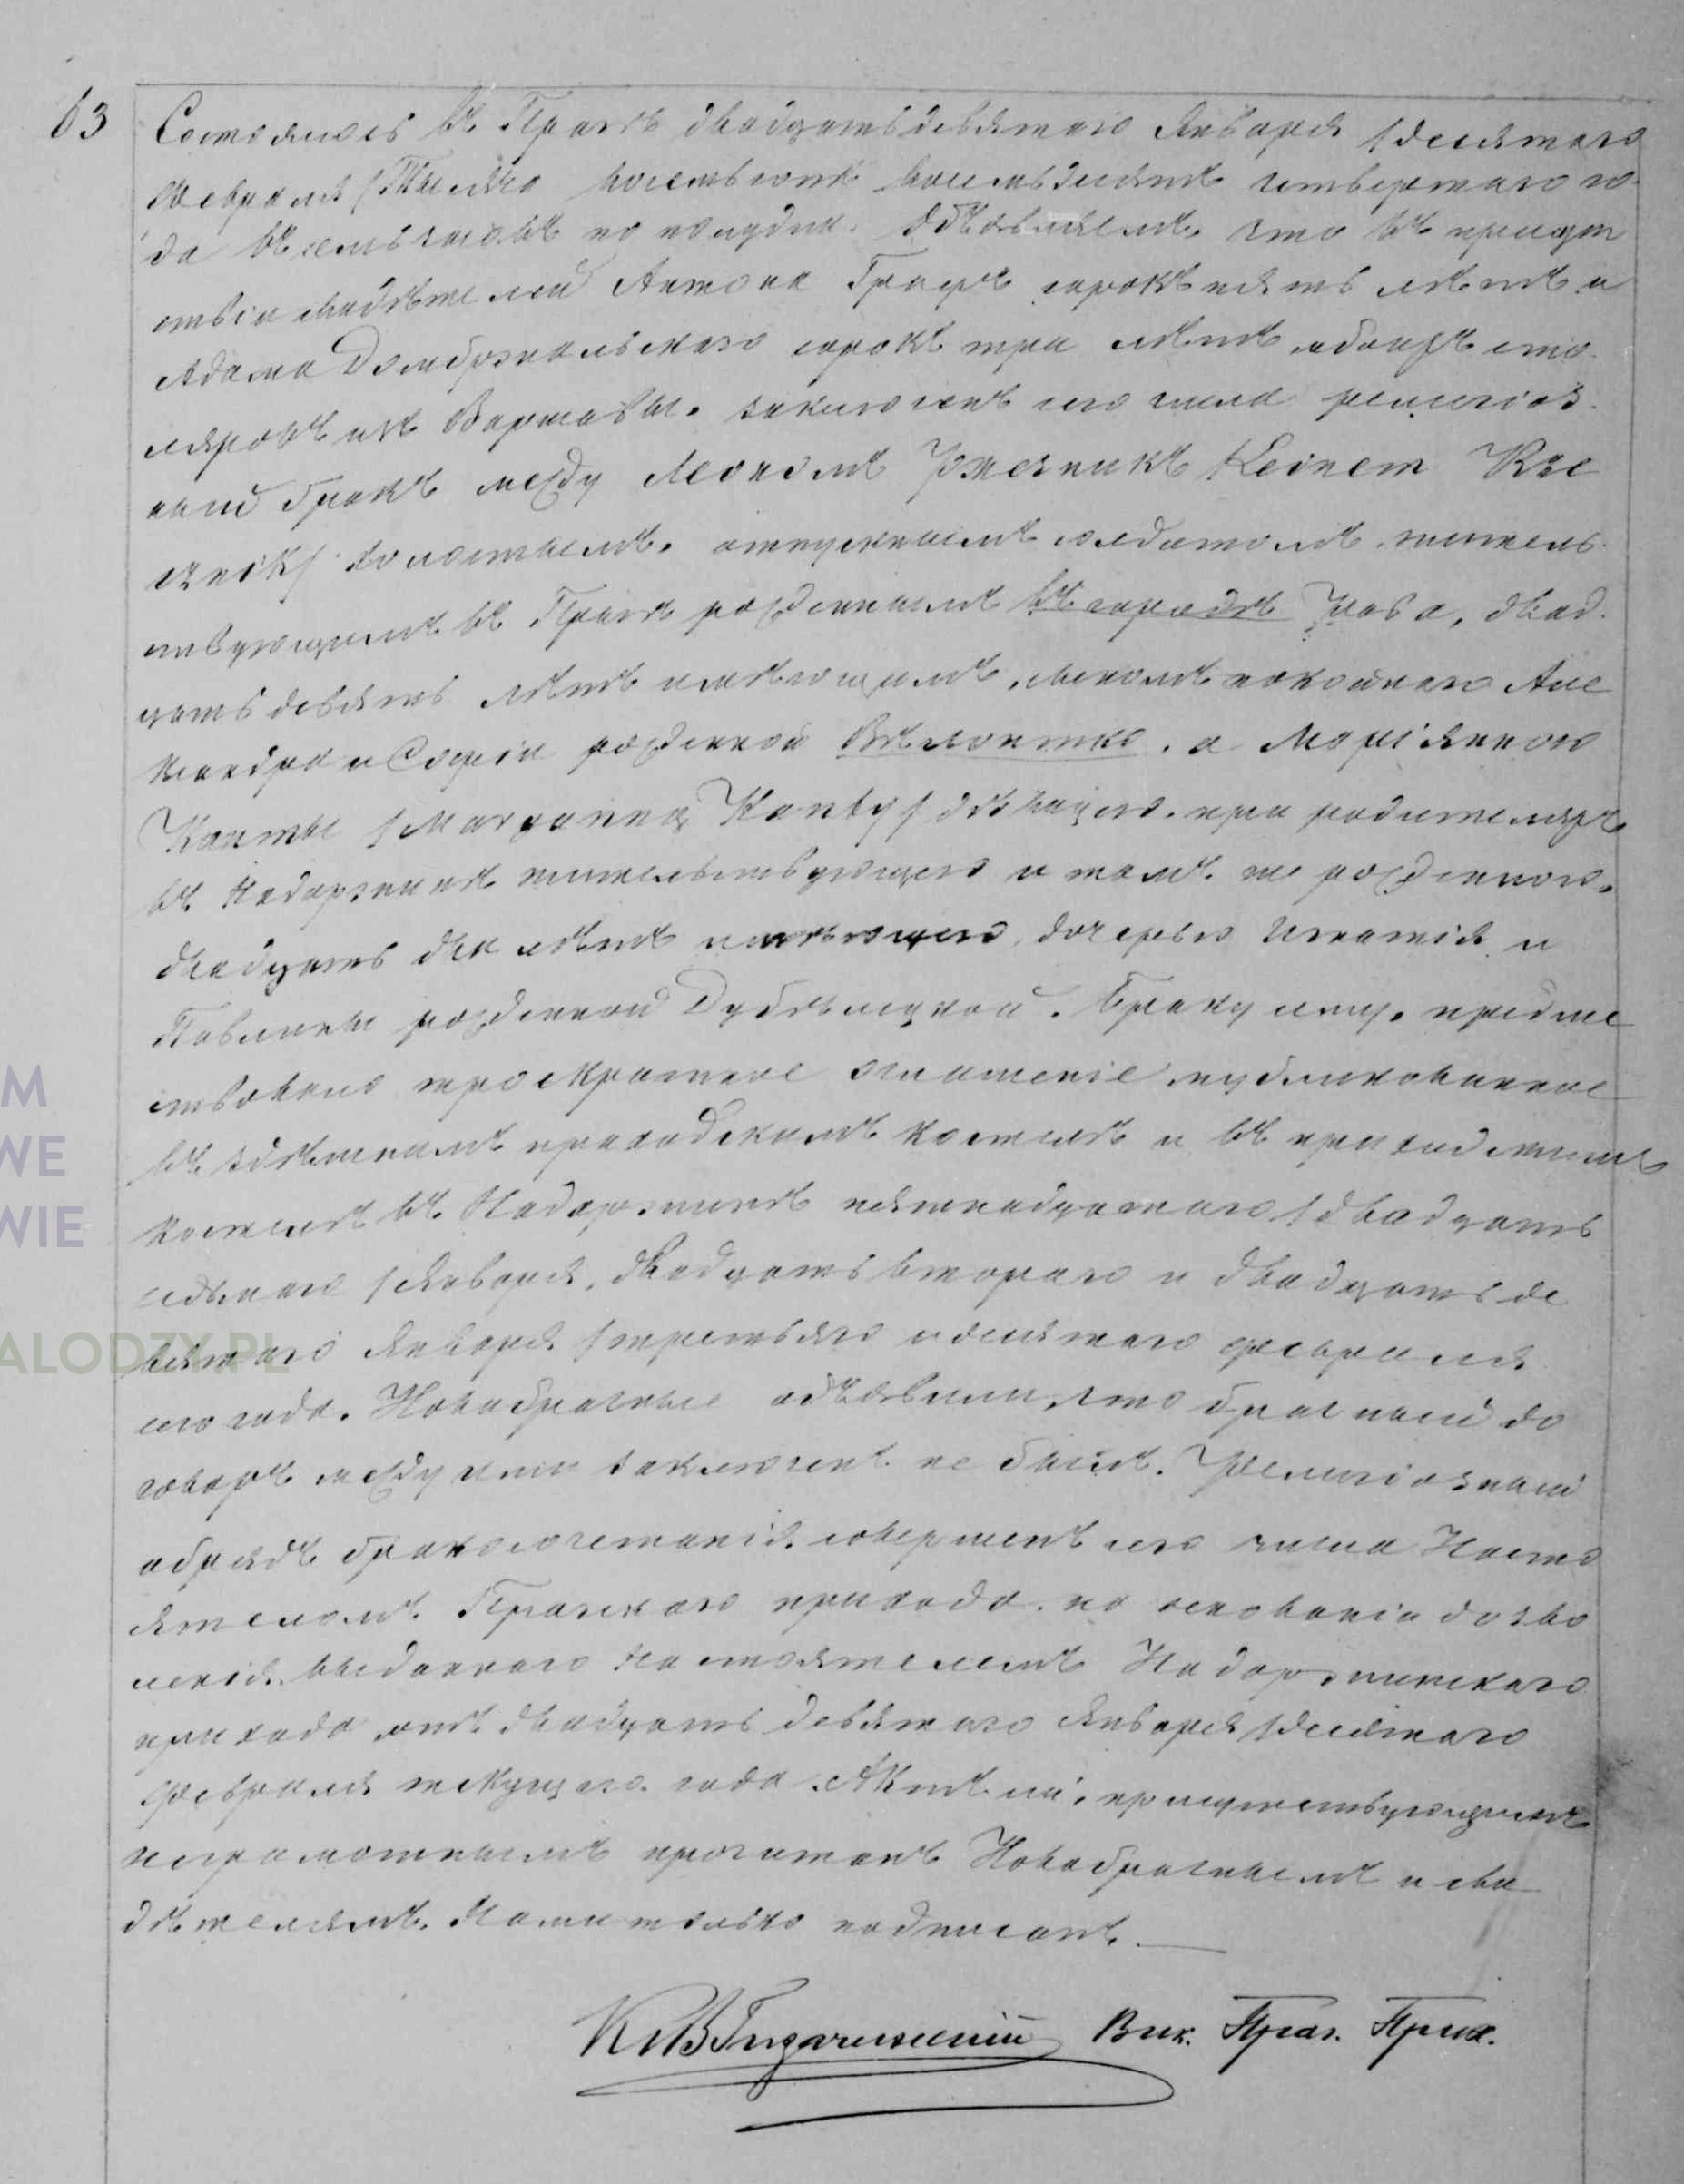 63
Состоялось въ Прагѣ двадцать девятаго Января /десятаго
Февраля/ Тысяча восемьсотъ восемьдесятъ четвертаго го-
да въ семь часовъ по полудни. Объявляемъ, что въ присут
ствіи свидѣтелей Антона сорокъ пять лѣтъ и
Адама Домбровальскаго сорокъ три лѣтъ обоихъ сто-
ляровъ изъ Варшавы. заключенъ сего числа религіоз-
ный бракъ между Леономъ Ржезникъ Leonem Rze
znik/ холостымъ, отпускнымъ солдатомъ жительст-
ствующимъ въ Прагѣ рожденнымъ въ городѣ Рава, двад-
цать девять лѣтъ имѣющимъ, сыномъ покойнаго Але
ксандра и Софіи рожденной а Маріянною
Канты /Maryanną Kanty/ дѣвицею, при родителяхъ
въ Надаржинѣ жительствующею и тамъ же рожденною,
двадцать два лѣтъ имѣющею, дочерью Игнатія и
Павлины рожденной Дубѣлецкой. Браку сему, предше
ствовало троекратное оглашеніе публикованное
въ здѣшнемъ приходскимъ костелѣ и въ приходскимъ
костелѣ въ Надаржинѣ пятнадцатаго /двадцать
седьмаго/ Января, двадцать втораго и двадцать де
вятаго Января /третьяго и десятаго Февраля
сего года. Новобрачные объявили, что брачный до
говоръ между ими заключенъ не былъ. Религіозный
обрядъ бракосочетанія совершенъ сего числа Насто
ятелемъ Пражскаго прихода на основаніи дозво
ленія выданнаго Настоятелемъ Надаржинскаго
прихода отъ двадцать девятаго Января /десятаго
Февраля текущаго года. Актъ сей, присутствующимъ
неграмотнымъ прочитанъ Новобрачнымъ и сви
дѣтелямъ. Нами только подписанъ.
Вик. Праг. Прих.
M
WE
WIE
ALODZY.PL